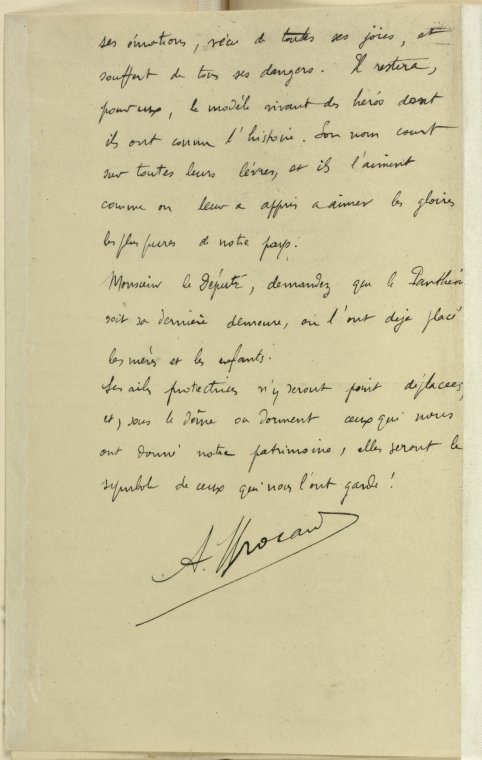 ses émotions, vécu de toutes ses joies, et
souffert de tous ses dangers. Il restera,
pour eux, le modèle vivant des héros dont
ils ont connu l'histoire. Son nom court
sur toutes leurs lèvres, et ils l'aiment
comme on leur a appris a aimer les gloires
les plus pures de notre pays.
Monsieur le Député, demandez que le Panthéon
soit sa dernière demeure, où l'ont déjà placé
les mères et les enfants.
Ses ailes protectrices n'y seront point déplacées,
et, sous le dôme ou dorment ceux qui nous
ont donné notre patrimoine, elles seront le
symbole de ceux qui nous l'ont gardé!
A.